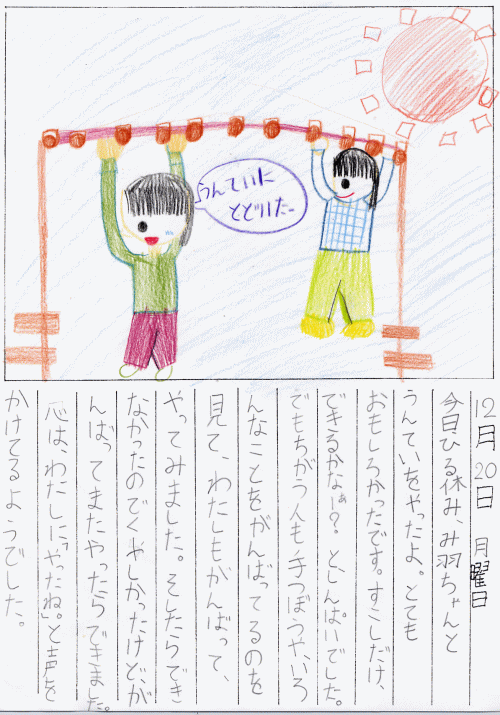 うんていに
とどいたー
12月20日 月曜日
今日ひる休み、み羽ちゃんと
うんていをやったよ。とても
おもしろかったです。すこしだけ、
できるかなぁー?。と、しんぱいでした。
でもちがう人も手つぼうや、いろ
んなことをがんばってるのを
見て、わたしもがんばって、
やってみました。そしたらでき
なかったのでくやしかったけど、が
んばってまたやったらできました。
心は、わたしに「やったね。」と声を
かけてるようでした。